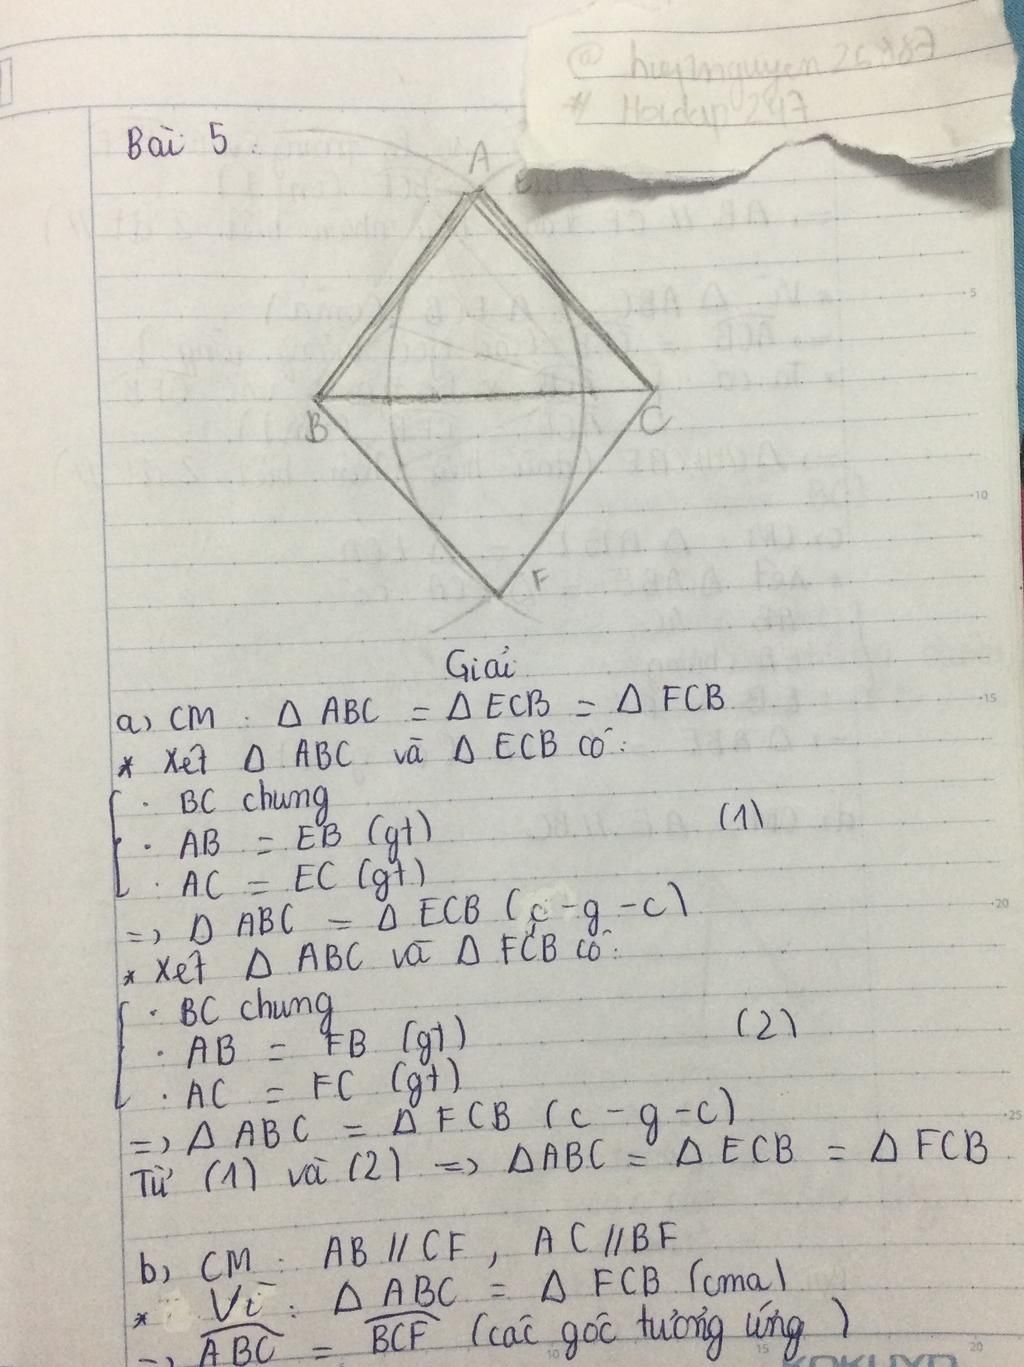 @ huynguyen26887
# Hoidap 247
Bài 5:
A
B
C
F
Giải
a) CM: Δ ABC = Δ ECB = Δ FCB
* Xét Δ ABC và Δ ECB có:
· BC chung
· AB = EB (gt) (1)
· AC = EC (gt)
=> Δ ABC = Δ ECB (c-g-c)
* Xét Δ ABC và Δ FCB có:
· BC chung
· AB = FB (gt) (2)
· AC = FC (gt)
=> Δ ABC = Δ FCB (c-g-c)
Từ (1) và (2) => ΔABC = Δ ECB = Δ FCB
b) CM: AB // CF, AC // BF
* Vì: Δ ABC = Δ FCB (cma)
=> ABC = BCF (các góc tương ứng)
5
10
15
20
25
10
15
20
KOKUYO